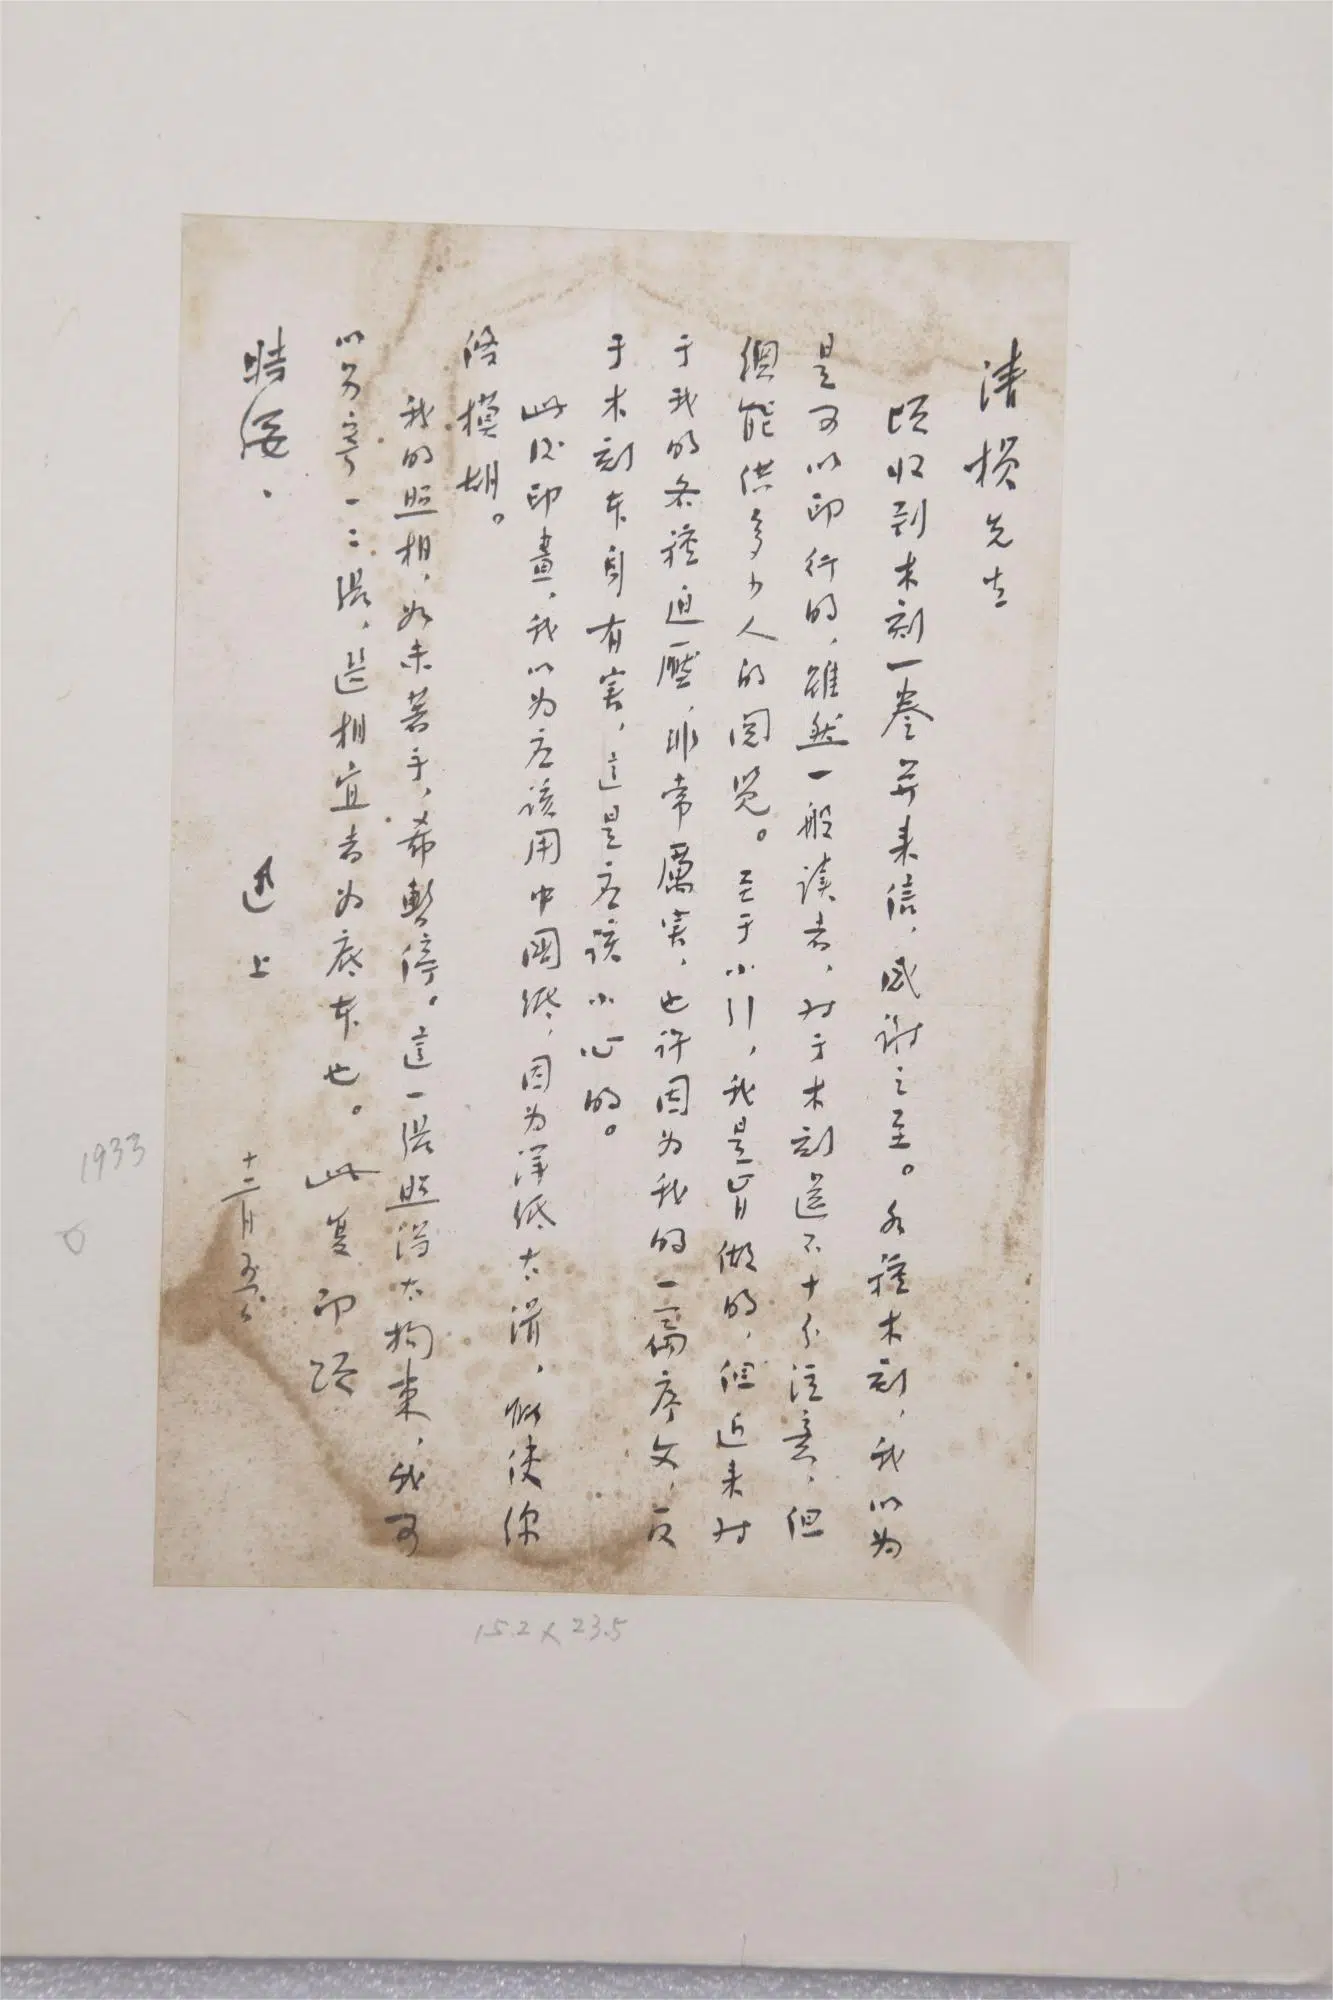 清損先生
頃收到木刻一卷并来信，感謝之至。各種木刻，我以为
是可以印行的，雖然一般读者，对于木刻還不十分注意，但
總能供多少人的阅览。至于小引，我是肯做的，但近来对
于我的各種迫壓，非常厲害，也许因为我的一篇序文，反
于木刻本身有害，這是应该小心的。
此后印畫，我以为应该用中國紙，因为洋紙太滑，能使线
條模胡。
我的照相，如未著手，希暫停。這一張照得太拘束，我可
以另寄一二張，選相宜者为底本也。此复即頌
時绥。
迅上
十二月五夜
1933
15.2×23.5